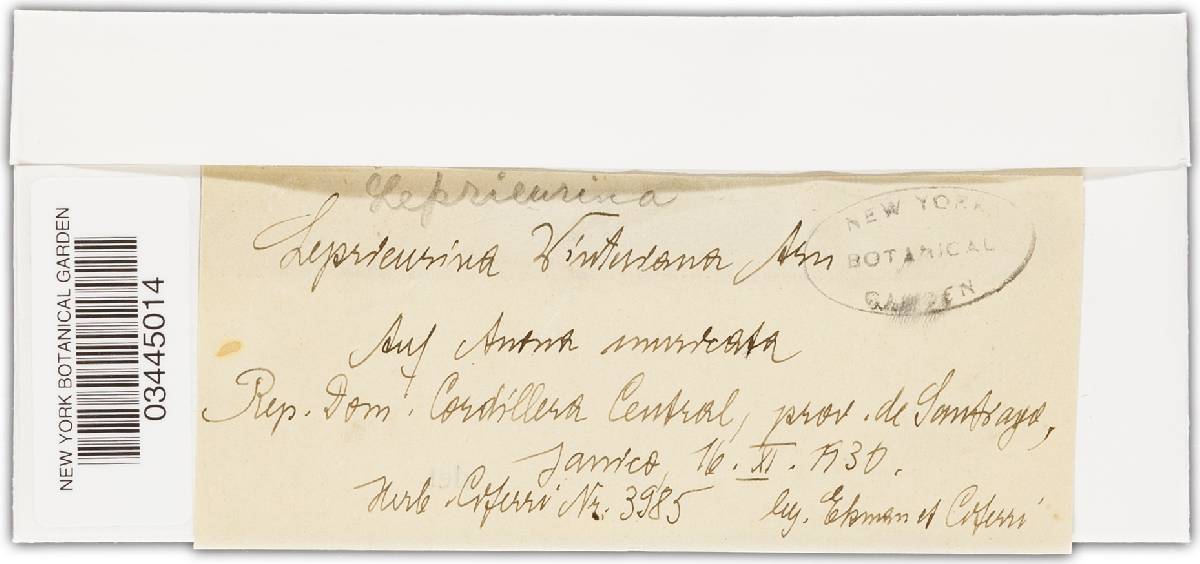 Leprieurina
Leprieurina Winteriana Arn
NEW YORK
BOTANICAL
GARDEN
Auf Anona muricata
Rep. Dom. Cordillera Central, prov. de Santiago,
Janico, 16. XI. 1930.
Herb. Ciferri Nr. 3985 leg. Ekman et Ciferri
NEW YORK BOTANICAL GARDEN
03445014